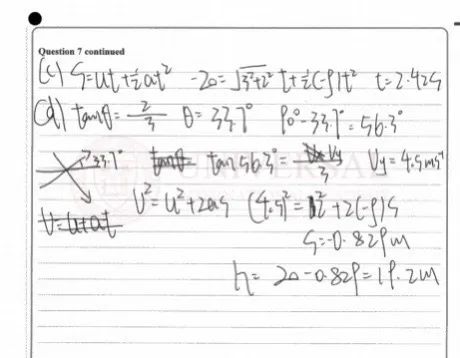 Question 7 continued
(c) S=ut+½at² -20=√3²+2² t+½(-g)t² t=2.42s
(d) tanθ=2/3 θ=33.7° 90°-33.7°=56.3°
33.7° tanθ= tan56.3°=Vy/3 Vy=4.5ms⁻¹
V=u+at V²=u²+2as (4.5)²=2²+2(-g)S
S=-0.829m
h=20-0.829=19.2m